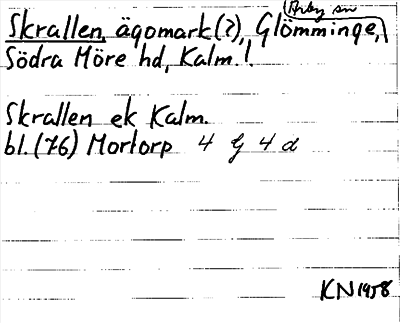 Arby sn
Skrallen, ägomark(?), Glömminge,
Södra Möre hd, Kalm. l.
Skrallen ek Kalm.
bl. (76) Mortorp 4 G 4 d
KN 1958